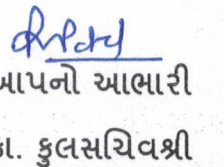 આપનો આભારી
કા. કુલસચિવશ્રી